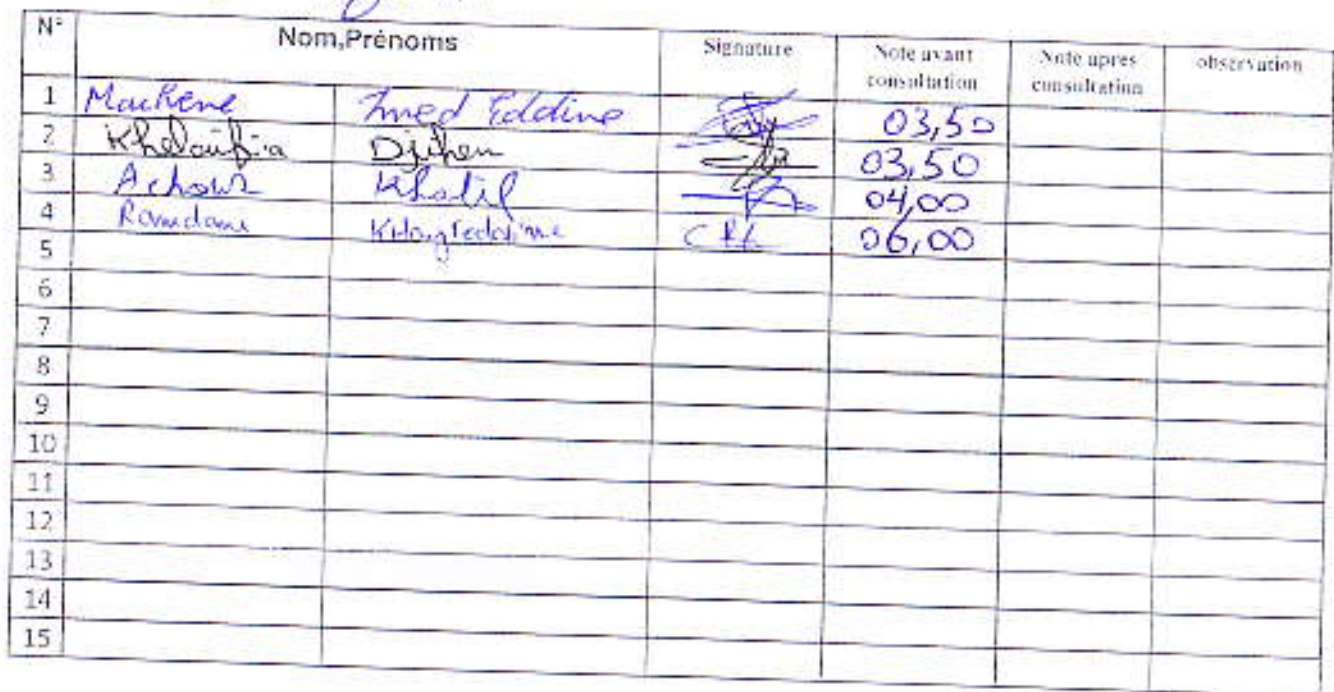 N° Nom,Prénoms Signature Note avant consultation Note apres consultation observation
1 Mackene Imed Eddine 03,50
2 Kheloufia Djihen 03,50
3 Achour Khalil 04,00
4 Ramdane 06,00
5
6
7
8
9
10
11
12
13
14
15